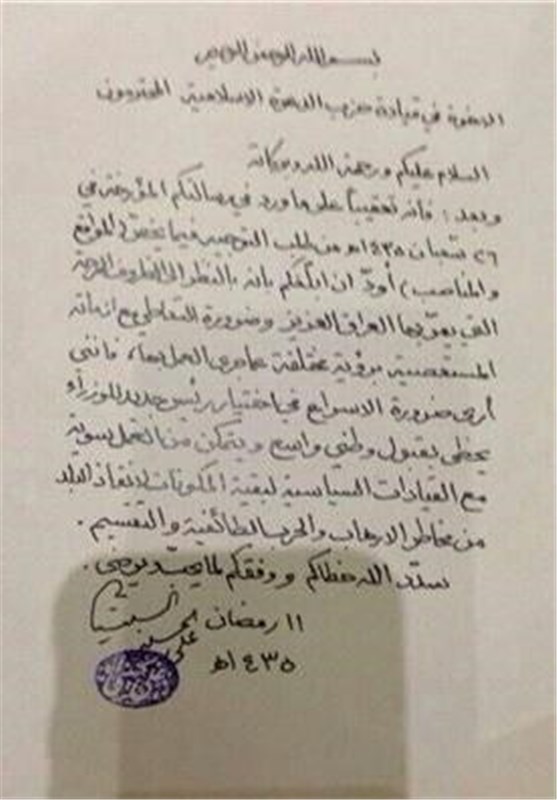 بسم الله الرحمن الرحيم
الاخوة في قيادة حزب الدعوة الاسلامية المحترمون
السلام عليكم ورحمة الله وبركاته
وبعد : فانه تعقيباً على ما ورد في رسالتكم المؤرخة في
٢٦ شعبان ١٤٣٥هـ من طلب التوجيه فيما يخصّ (المواقع
والمناصب) أودّ ان ابلّغكم بانه بالنظر الى الظروف الحرجة
التي يمرّ بها العراق العزيز وضرورة التعاطي مع ازماته
المستعصية برؤية مختلفة عما جرى العمل بها، فانني
أرى ضرورة الاسراع في اختيار رئيس جديد للوزراء
يحظى بقبول وطني واسع ويتمكن من العمل سوية
مع القيادات السياسية لبقية المكونات لانقاذ البلد
من مخاطر الارهاب والحرب الطائفية والتقسيم .
سدّد الله خطاكم ووفقكم لما يحبّ ويرضى .
١١ رمضان
علي الحسيني السيستاني
١٤٣٥هـ